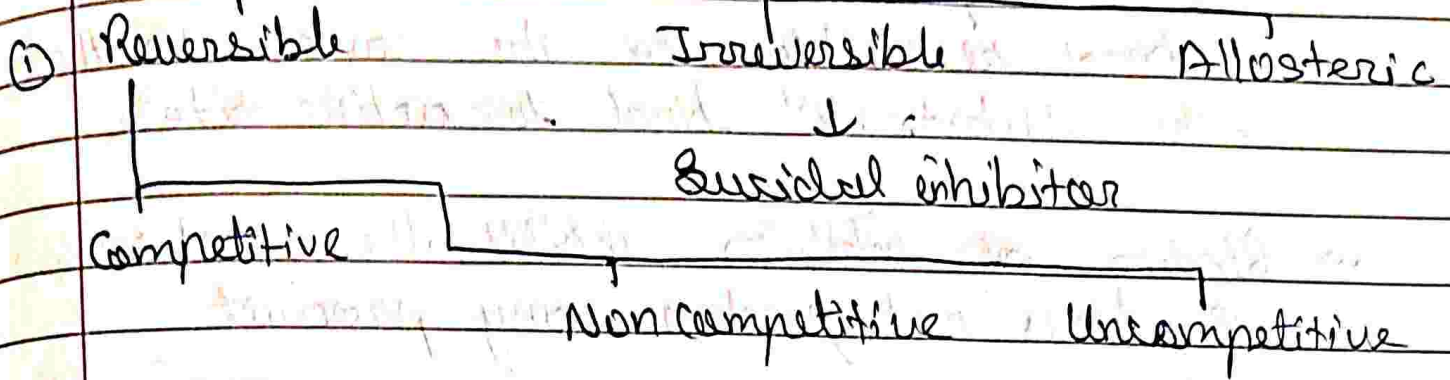 ① Reversible Irreversible Allosteric
↓
Suicidal inhibitor
Competitive
Noncompetitive Uncompetitive